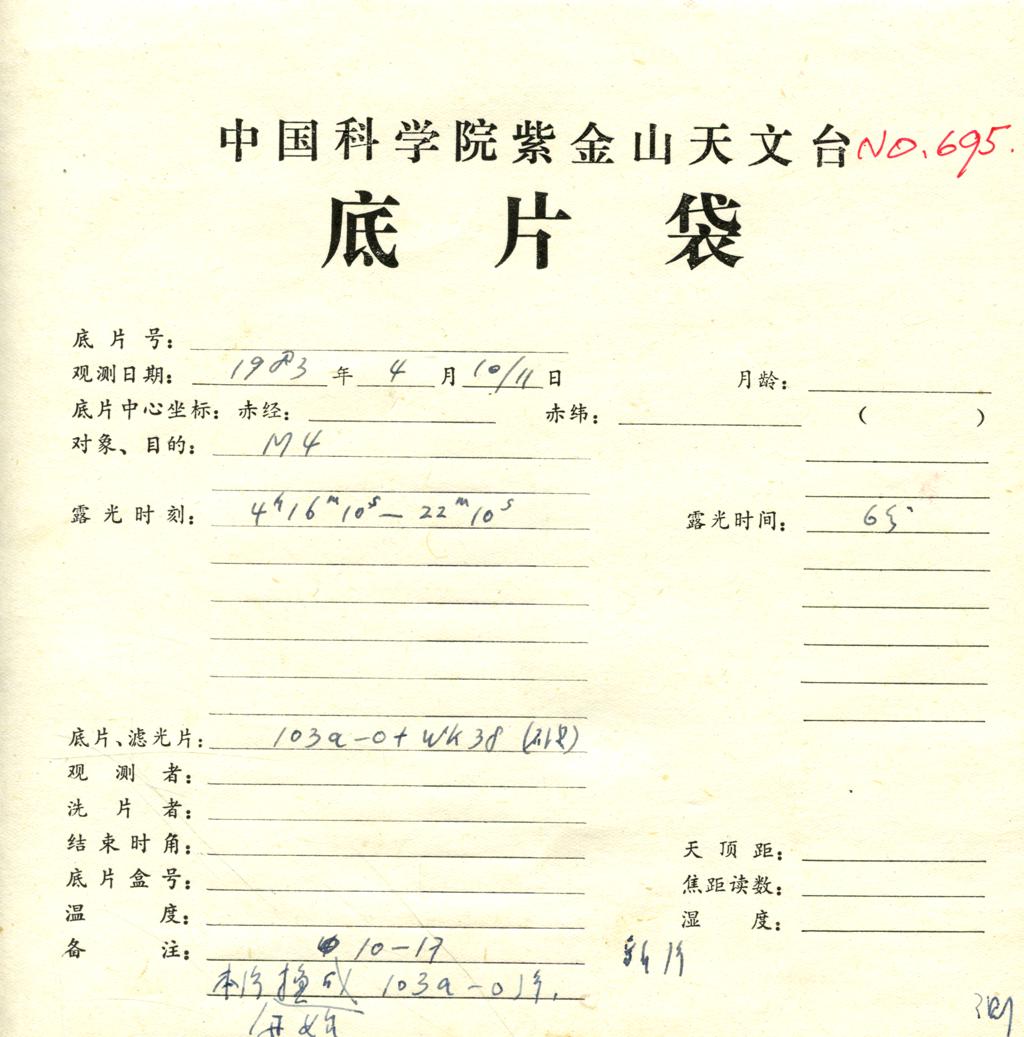 中国科学院紫金山天文台 NO.695.
底片袋
底片号：
观测日期： 1983 年 4 月 10/11 日 月龄：
底片中心坐标：赤经： 赤纬： （ ）
对象、目的： M4
露光时刻： 4h16m10s—22m10s 露光时间： 6分
底片、滤光片： 103a-0+WK38
观测者：
洗片者：
结束时角： 天顶距：
底片盒号： 焦距读数：
温度： 湿度：
备注： 10-17 新片
本片换成 103a-0片.
开始